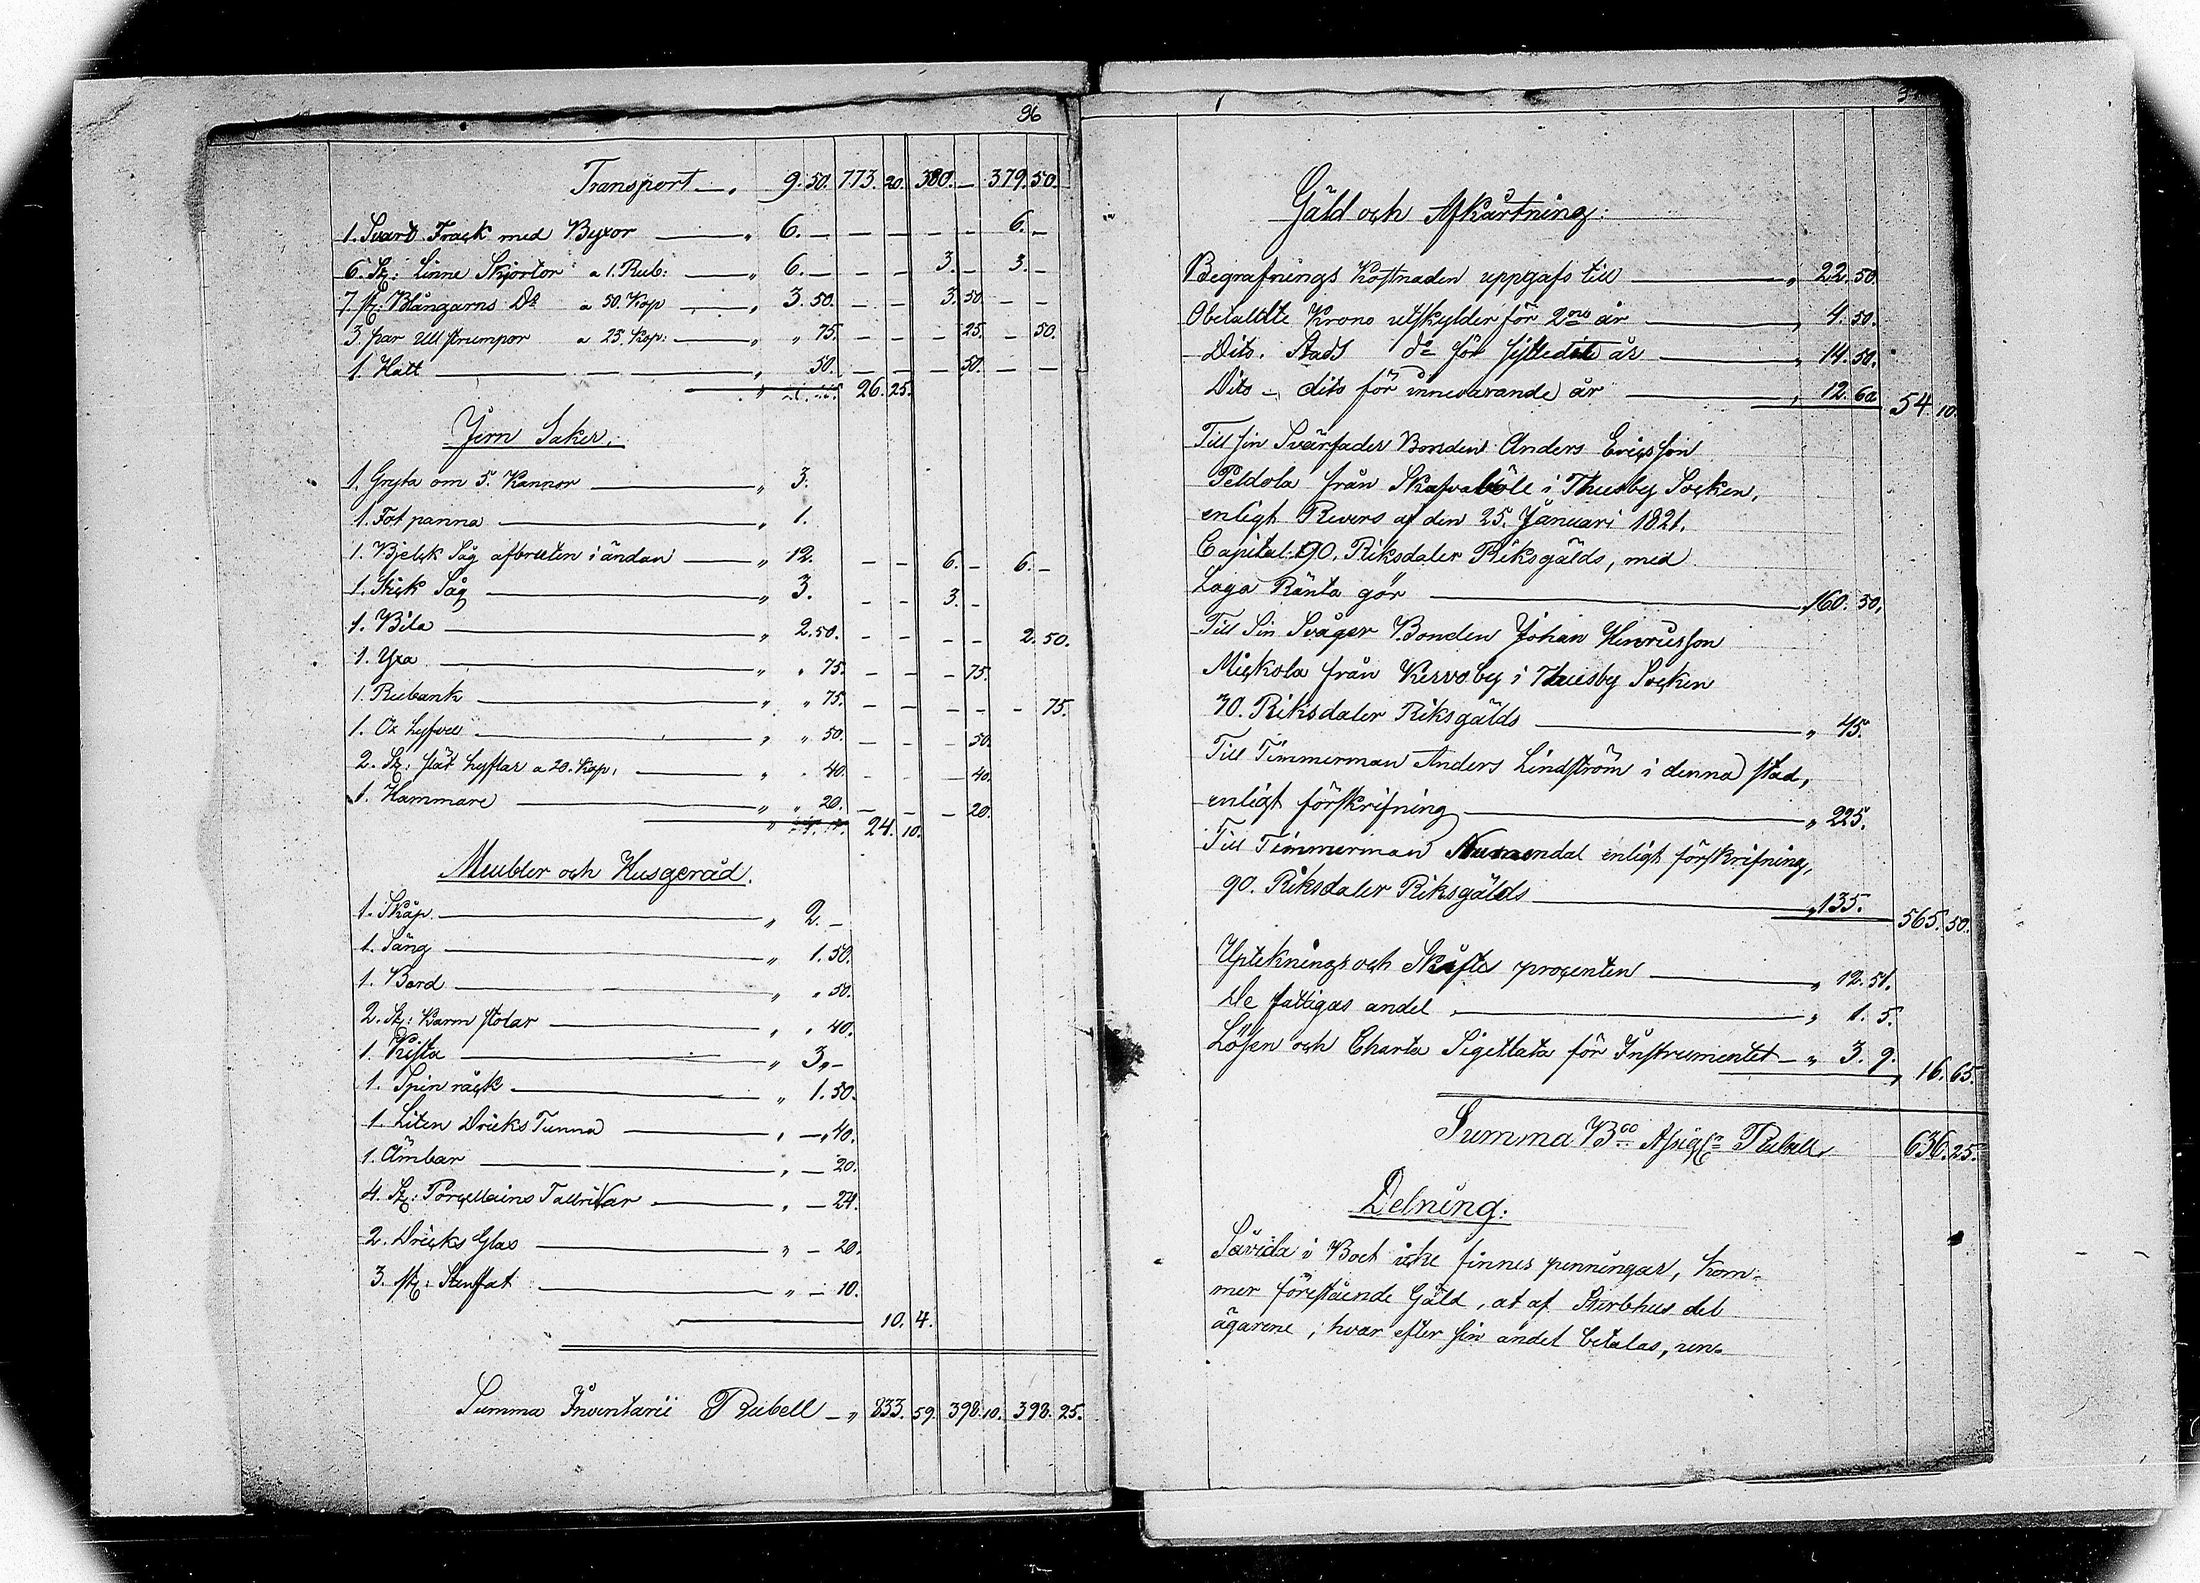 96
Transport — „ 9. 50. 773. 20. 380. — 379. 50.
1. Svart Frack med Byxor — „ 6. — — — — — 6. —
6. St: Linne Skjortor a 1. Rub: — „ 6. — — — 3. — 3. —
7. st: Blångarns Do a 50. Kop — „ 3. 50. — — 3. 50. — —
3. par Ull strumpor a 25. Kop: — „ „ 75. — — — 25. — 50.
1. Hatt — „ 50. — — — 50. — —
26. 25.
Jern Saker.
1. Gryta om 5. Kannor — „ 3.
1. Fot panna — „ 1.
1. Bjelck Såg afbruten i ändan — „ 12. — — 6. — 6. —
1. Stick Såg — „ 3. — — 3. —
1. Bila — „ 2. 50. — — — — 2. 50.
1. Yxa — „ „ 75. — — — 75.
1. Rubank — „ „ 75. — — — — — 75.
1. Ox hyfvel — „ „ 50. — — — 50.
2. St: slät hyflar a 20. Kop: — „ „ 40. — — — 40.
1. Hammare — „ „ 20. — — — 20.
24. 10.
Meubler och Husgeråd.
1. Skåp. — „ 2. —
1. Säng — „ 1. 50.
1. Bord — „ „ 50.
2. St: Karm stolar — „ „ 40.
1. Kista — „ 3. „ —
1. Spin råck — „ 1. 50.
1. Liten Dricks Tunna — „ — „ 40.
1. Ämbar — „ — 20.
4. St: Porcellains Tallrikar — „ — 24.
2. Dricks Glas — „ — 20.
3. st: Stenfat — „ — 10.
10. 4.
Summa Inventarii Rubell — „ 833. 59. 398. 10. 398. 25.
Gäld och Afkårtning:
Begrafnings Kostnaden uppgafs till — „ 22. 50.
Obetallte Krono utskylder för 2ne år — „ 4. 50.
Dito. Stads do för sistledit år — „ 14. 50.
Dito — dito för innevarande år — „ 12. 60 54 10.
Till sin Svärfader Bonden Anders Ericsson
Peldola från Skafvaböle i Thusby Socken,
enligt Revers af den 25. Januari 1821.
Capital. 90. Riksdaler Riksgälds, med
Laga Ränta gör — 160. 50.
Till Sin Svåger Bonden Johan Henricsson
Mickola från Kervoby i Thusby Socken
30. Riksdaler Riksgälds — „ 45.
Till Timmerman Anders Lindström i denna stad,
enligt förskrifning — „ 225.
Till Timmerman enligt förskrifning,
90. Riksdaler Riksgälds — „ 135. 565. 50.
Upteknings och Skiftes procenten — „ 12. 51.
De fattigas andel — „ 1. 5.
Lösen och Charta Sigillata för Instrumentet — „ 3. 9. 16. 65.
Summa Bco Rubell 636. 25.
Delning:
Såvida i Boet icke finnes penningar, kom-
mer förestående Gäld, at af Sterbhus del
ägarene, hvar efter sin andel betalas, un-